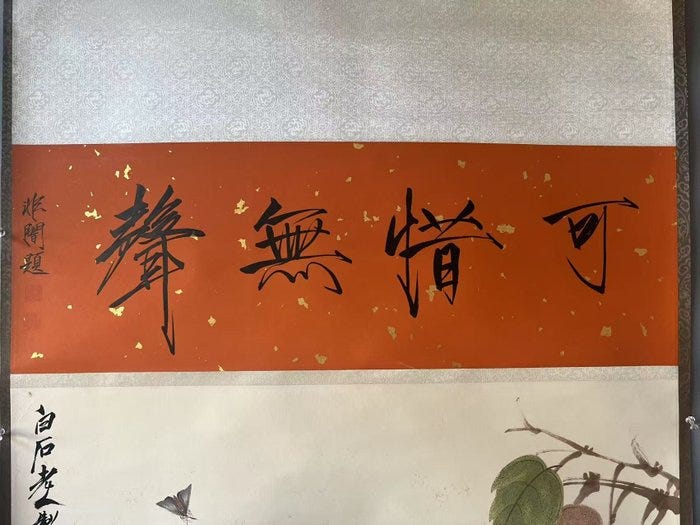 可惜無聲
非闇題
白石老人製